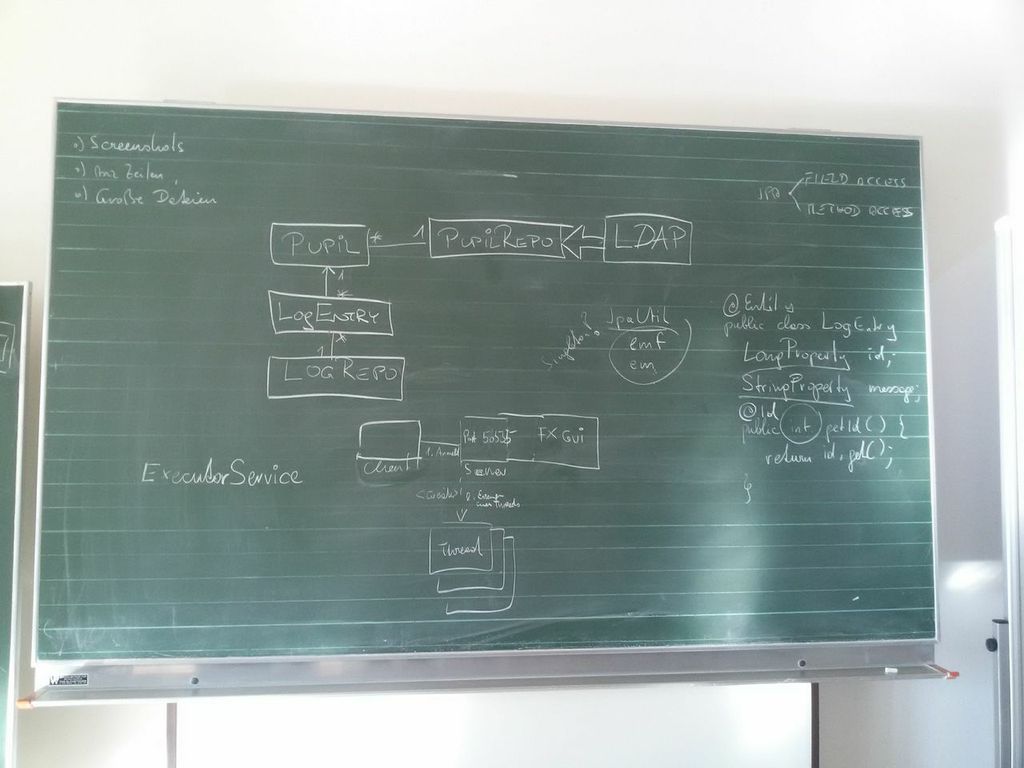 Screenshots
Anz Zeilen
Große Dateien
JPA
FIELD ACCESS
METHOD ACCESS
PUPIL
*
1
PUPILREPO
LDAP
1
*
LOGENTRY
*
1
LOGREPO
Singleton?
JpaUtil
emf
em
@Entity
public class LogEntry
LongProperty id;
StringProperty message;
@Id
public int getId() {
return id.get();
}
Client
Port
FX GUI
Server
ExecutorService
<creates>
Thread